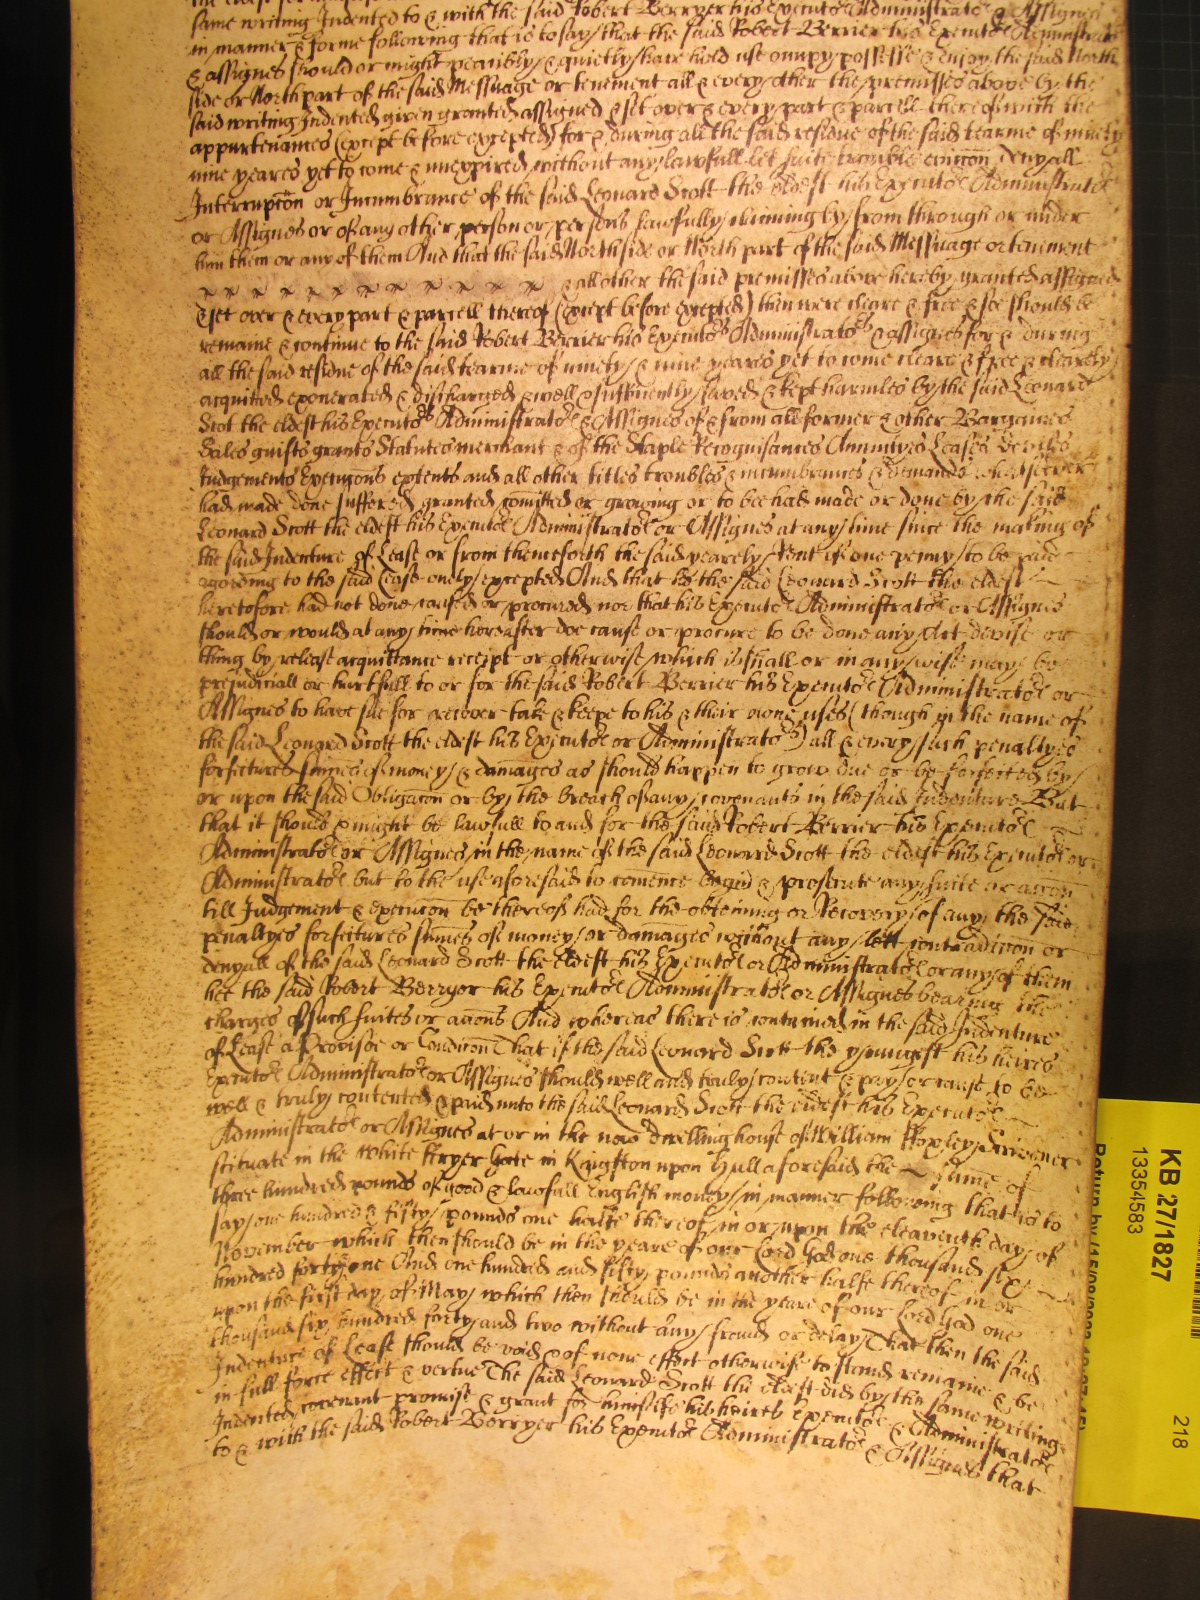 same writing Indented to & with the said Robert Berryer his Executors Administrators & Assignes
in manner & forme following that is to say that the said Robert Berrier his Executors Administrators
& assignes should or might peaceably & quietly have hold use occupy possesse & enjoy the said North
side or North part of the said Messuage or tenement all & every other the premisses above by the
said writing Indented given granted assigned & set over & every part & parcell thereof with the
appurtenances (except before excepted) for & during all the said residue of the said tearme of ninety
nine yeares yet to come & unexpired without any lawfull let suite trouble eviccon denyall
Interrupcon or Incumbrance of the said Leonard Scott the eldest his Executors Administrators
or Assignes or of any other person or persons lawfully claiming by from through or under
him them or any of them And that the said North side or North part of the said Messuage or tenement
& all other the said premisses above hereby granted assigned
& set over & every part & parcell thereof (except before excepted) then were cleare & free & soe should be
remaine & continue to the said Robert Berrier his Executors Administrators & assignes for & during
all the said residue of the said tearme of ninety & nine yeares yet to come cleare & free & clearely
acquitted exonerated & discharged & well & sufficiently saved & kept harmles by the said Leonard
Scot the eldest his Executors Administrators & Assignes of & from all former & other Bargaines
Sales guifts grants Statutes merchant & of the Staple Recognisances Annuityes Leases
Judgements Execucons extents and all other titles troubles & incumbrances & demands whatsoever
had made done suffered granted comitted or growing or to bee had made or done by the said
Leonard Scott the eldest his Executors Administrators or Assignes at any time since the making of
the said Indenture of Lease or from thenceforth the said yearely Rent of one penny to be paid
according to the said Lease onely excepted And that he the said Leonard Scott the eldest
heretofore had not done caused or procured nor that his Executors Administrators or Assignes
should or would at any time hereafter doe cause or procure to be done any Act devise or
thing by release acquittance receipt or otherwise which shall or in any wise may be
prejudiciall or hurtfull to or for the said Robert Berrier his Executors Administrators or
Assignes to have sue for recover take & keepe to his & their owne uses (though in the name of
the said Leonard Scott the eldest his Executors or Administrators) all & every such penaltyes
forfeitures summes of money & damages as should happen to grow due or be forfeited by
or upon the said Obligacon or by the breach of any covenants in the said Indenture But
that it should & might be lawfull to and for the said Robert Berrier his Executors
Administrators or Assignes in the name of the said Leonard Scott the eldest his Executors or
Administrators but to the use aforesaid to comence begin & prosecute any suite or accon
till Judgement & execucon be thereof had for the obteining or Recovery of any the said
penaltyes forfeitures summes of money or damages without any lett contradiccon or
denyall of the said Leonard Scott the eldest his Executors or Administrators or any of them
hee the said Robert Berryer his Executors Administrators or Assignes bearing the
charges of such suites or accons And whereas there is conteined in the said Indenture
of Lease a Provisoe or Condicon That if the said Leonard Scott the youngest his heires
Executors Administrators or Assignes should well and truly content & pay or cause to be
well & truly contented & paid unto the said Leonard Scott the eldest his Executors
Administrators or Assignes at or in the now dwelling house of William Scrivener
scituate in the White Fryer Gate in Kingston upon Hull aforesaid the summe of
three hundred pounds of good & lawfull English money in manner following that is to
say one hundred & fifty pounds one halfe thereof in or upon the eleaventh day of
November which then should be in the yeare of our Lord God one thousand six
hundred forty one And one hundred and fifty pounds another halfe thereof in or
upon the first day of May which then should be in the yeare of our Lord God one
thousand six hundred forty and two without any fraud or delay That then the said
Indenture of Lease should be void & of none effect otherwise to stand remaine & be
in full force effect & vertue The said Leonard Scott the eldest did by the same writing
Indented covenant promise & grant for himselfe his heires Executors & Administrators
to & with the said Robert Berryer his Executors Administrators & Assignes that
KB 27/1827
13354583
218